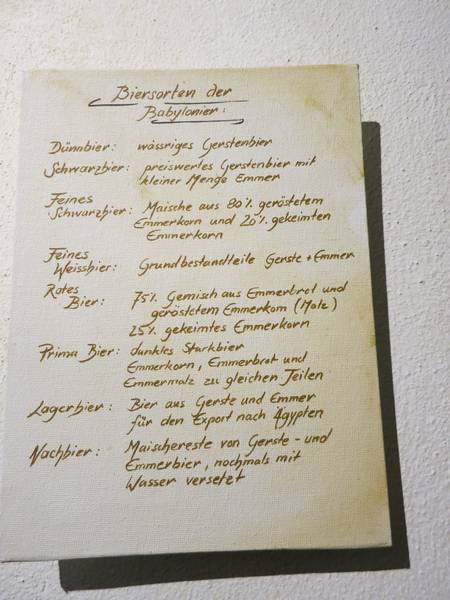 Biersorten der
Babylonier:
Dünnbier: wässriges Gerstenbier
Schwarzbier: preiswertes Gerstenbier mit
kleiner Menge Emmer
Feines
Schwarzbier: Maische aus 80% geröstetem
Emmerkorn und 20% gekeimten
Emmerkorn
Feines
Weissbier: Grundbestandteile Gerste + Emmer
Rotes
Bier: 75% Gemisch aus Emmerbrot und
geröstetem Emmerkorn (Malz)
25% gekeimtes Emmerkorn
Prima Bier: dunkles Starkbier
Emmerkorn, Emmerbrot und
Emmermalz zu gleichen Teilen
Lagerbier: Bier aus Gerste und Emmer
für den Export nach Ägypten
Nachbier: Maischereste von Gerste- und
Emmerbier, nochmals mit
Wasser versetzt